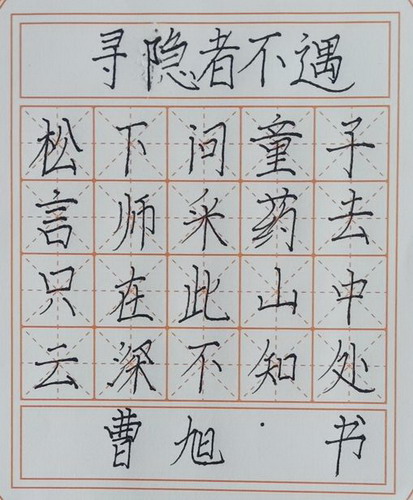 寻隐者不遇
松下问童子
言师采药去
只在此山中
云深不知处
曹旭·书